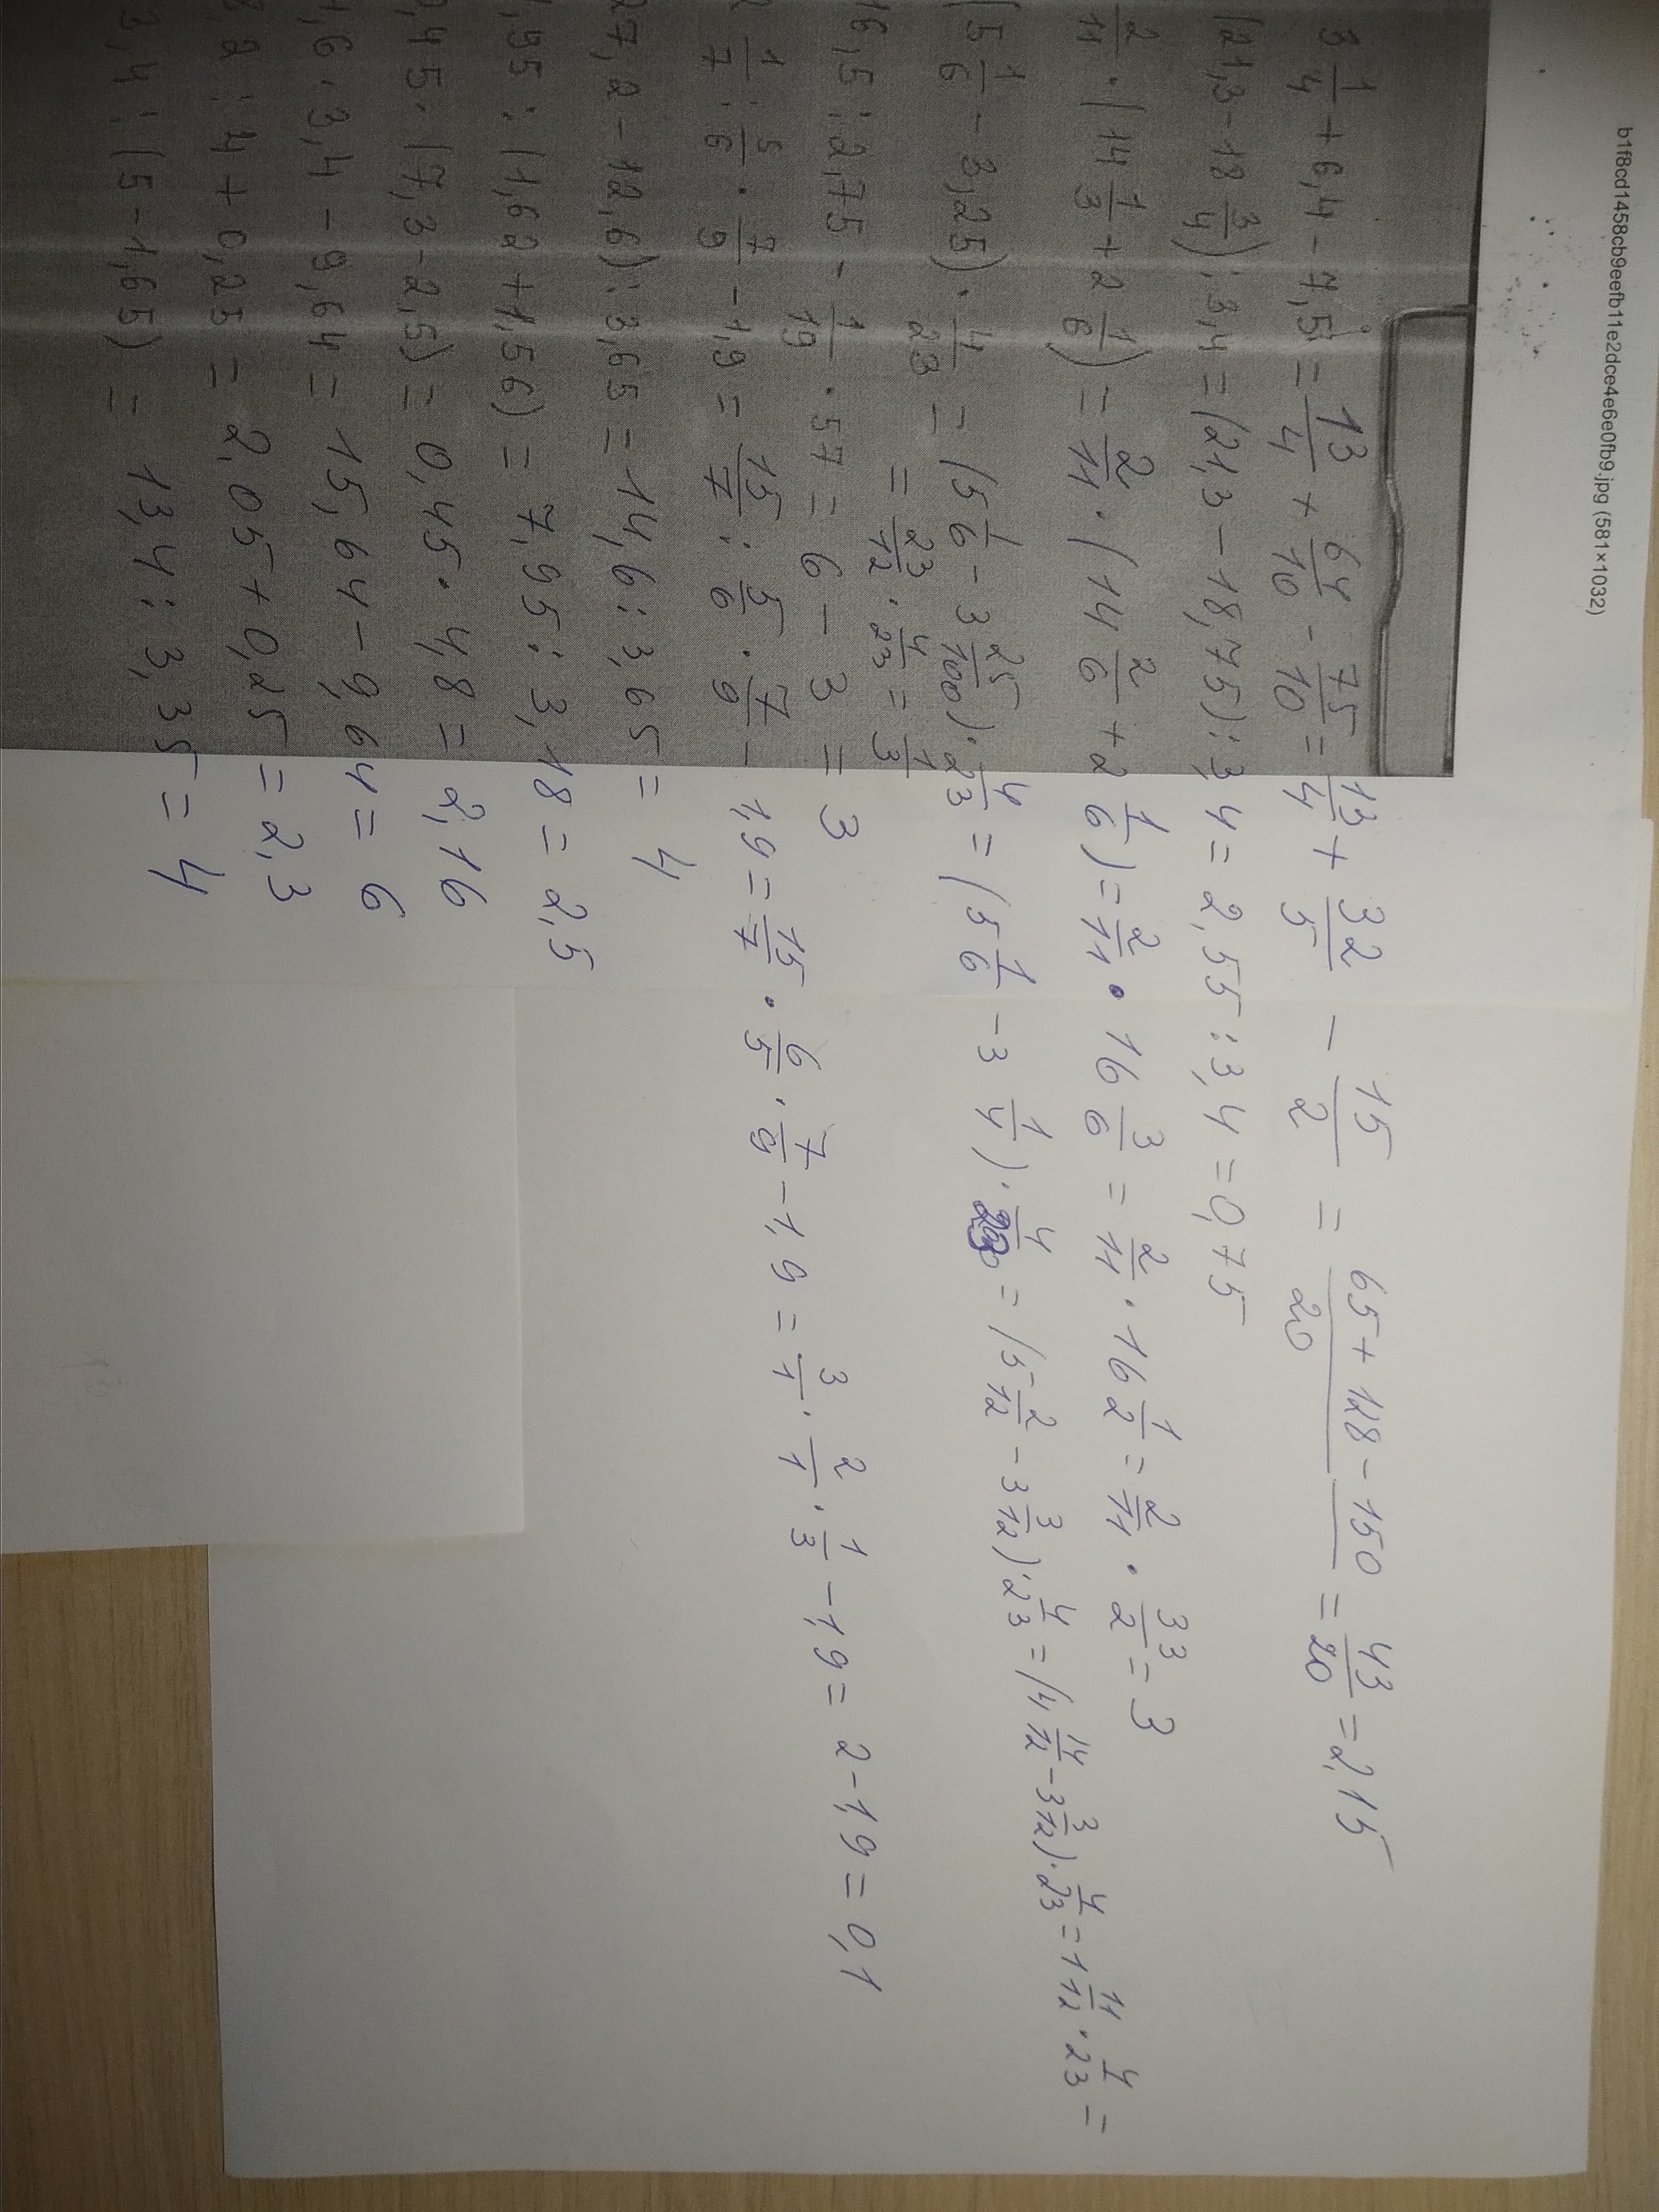 b1f8cd1458cb9eefb11e2dce4e6e0fb9.jpg (581×1032)
3 1/4 + 6,4 - 7,5 = 13/4 + 64/10 - 75/10 = 13/4 + 32/5 - 15/2 = (65 + 128 - 150)/20 = 43/20 = 2,15
(21,3 - 18 3/4) : 3,4 = (21,3 - 18,75) : 3,4 = 2,55 : 3,4 = 0,75
2/11 · (14 1/3 + 2 1/6) = 2/11 · (14 2/6 + 2 1/6) = 2/11 · 16 3/6 = 2/11 · 16 1/2 = 2/11 · 33/2 = 3
(5 1/6 - 3,25) · 4/23 = (5 1/6 - 3 25/100) · 4/23 = (5 1/6 - 3 1/4) · 4/23 = (5 2/12 - 3 3/12) · 4/23 = (4 14/12 - 3 3/12) · 4/23 = 1 11/12 · 4/23 =
= 23/12 · 4/23 = 1/3
16,5 : 2,75 - 1/19 · 57 = 6 - 3 = 3
1/7 : 5/6 · 7/9 - 1,9 = 15/7 : 5/6 · 7/9 - 1,9 = 15/7 · 6/5 · 7/9 - 1,9 = 3/1 · 2/1 · 1/3 - 1,9 = 2 - 1,9 = 0,1
27,2 - 12,6) : 3,65 = 14,6 : 3,65 = 4
,95 : (1,62 + 1,56) = 7,95 : 3,18 = 2,5
,45 · (7,3 - 2,5) = 0,45 · 4,8 = 2,16
,6 · 3,4 - 9,64 = 15,64 - 9,64 = 6
,2 : 4 + 0,25 = 2,05 + 0,25 = 2,3
3,4 : (5 - 1,65) = 13,4 : 3,35 = 4